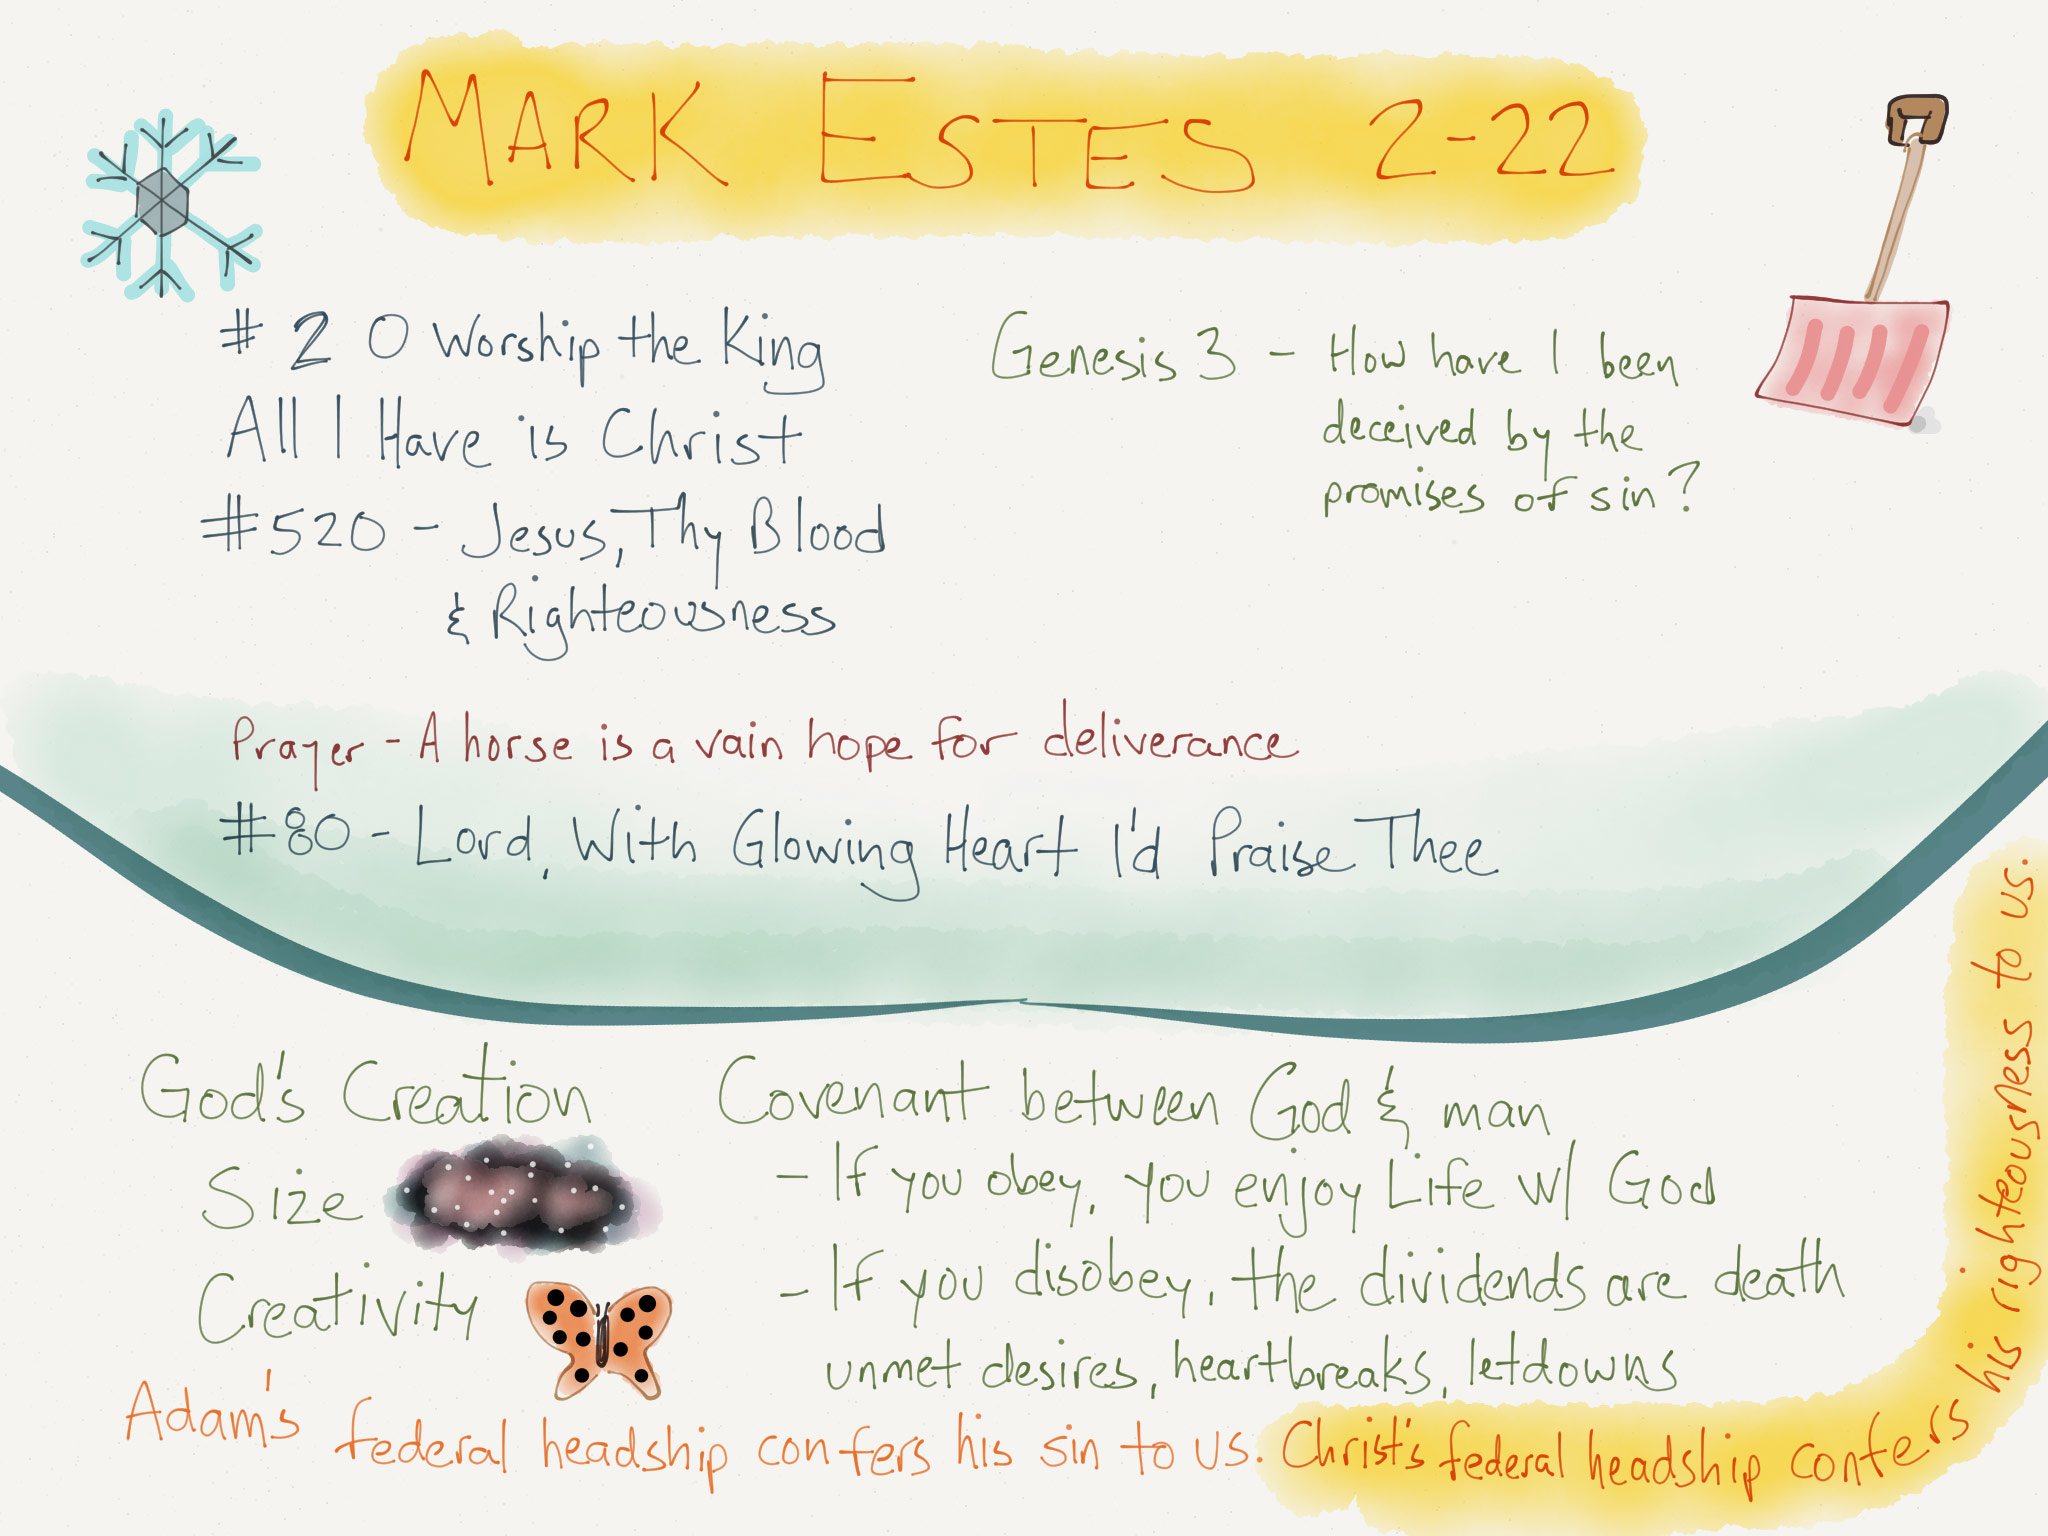 MARK ESTES 2-22
# 2 O Worship the King
All I Have is Christ
#520 - Jesus, Thy Blood
& Righteousness
Genesis 3 - How have I been
deceived by the
promises of sin?
Prayer - A horse is a vain hope for deliverance
#80 - Lord, With Glowing Heart I'd Praise Thee
God's Creation
Size
Creativity
Covenant between God & man
- If you obey, you enjoy Life w/ God
- If you disobey, the dividends are death
unmet desires, heartbreaks, letdowns
Adam's federal headship confers his sin to us. Christ's federal headship confers his righteousness to us.